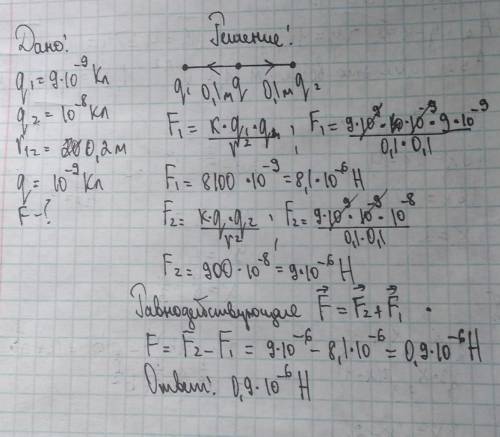 Дано:
q1 = 9·10^-9 Кл
q2 = 10^-8 Кл
r12 = 0,2 м
q = 10^-9 Кл
F - ?
Решение:
q1 0,1м q 0,1м q2
F1 = k·q1·q / r^2 ; F1 = 9·10^9·10^-9·9·10^-9 / 0,1·0,1
F1 = 8100·10^-9 = 8,1·10^-6 Н
F2 = k·q·q2 / r^2 ; F2 = 9·10^9·10^-9·10^-8 / 0,1·0,1
F2 = 900·10^-8 = 9·10^-6 Н
Равнодействующая F⃗ = F⃗2 + F⃗1
F = F2 - F1 = 9·10^-6 - 8,1·10^-6 = 0,9·10^-6 Н
Ответ: 0,9·10^-6 Н